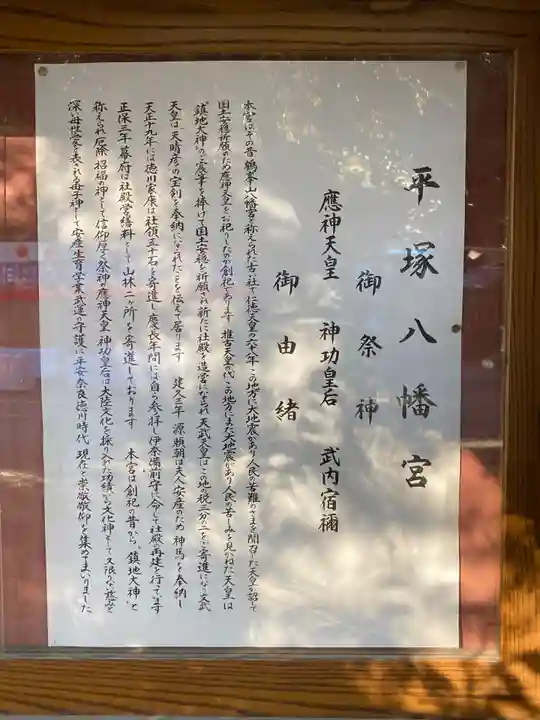 平塚八幡宮
御祭神
應神天皇　神功皇后　武内宿禰
御由緒
本宮はその昔「鶴峯山八幡宮」と称えられた古い社で仁徳天皇の六八年この地方に大地震があり人民の苦難のさまを聞召された天皇が詔して
国土安穏祈願のため應神天皇をお祀りしたのが創祀であります　推古天皇の代この地方にまた大地震があり人民の苦しみを見かねた天皇は
「鎮地大神」のご宸筆を捧げて国土安穏を祈願され新たに社殿を造営になられ天武天皇はこの地の税三分の一をご寄進になり文武
天皇は「天晴彦」の宝剣を奉納になられたことを伝えて居ります　建久三年　源頼朝は夫人安産のため神馬を奉納し
天正十九年には徳川家康は社領五十石を寄進し慶長年間には自ら参拝し伊奈備前守に命じて社殿の再建を行っています
正保三年幕府は社殿営繕料として山林二ヶ所を寄進しております　本宮は創祀の昔から「鎮地大神」と
称えられ厄除、招福の神として信仰厚く祭神の應神天皇、神功皇后は大陸文化を採り入れた功績から文化神として又限りなき慈みと
深い母性愛を表される母子神として安産生育学業武運の守護に平安奈良徳川時代、現在と崇敬敬仰を集めてまいりました